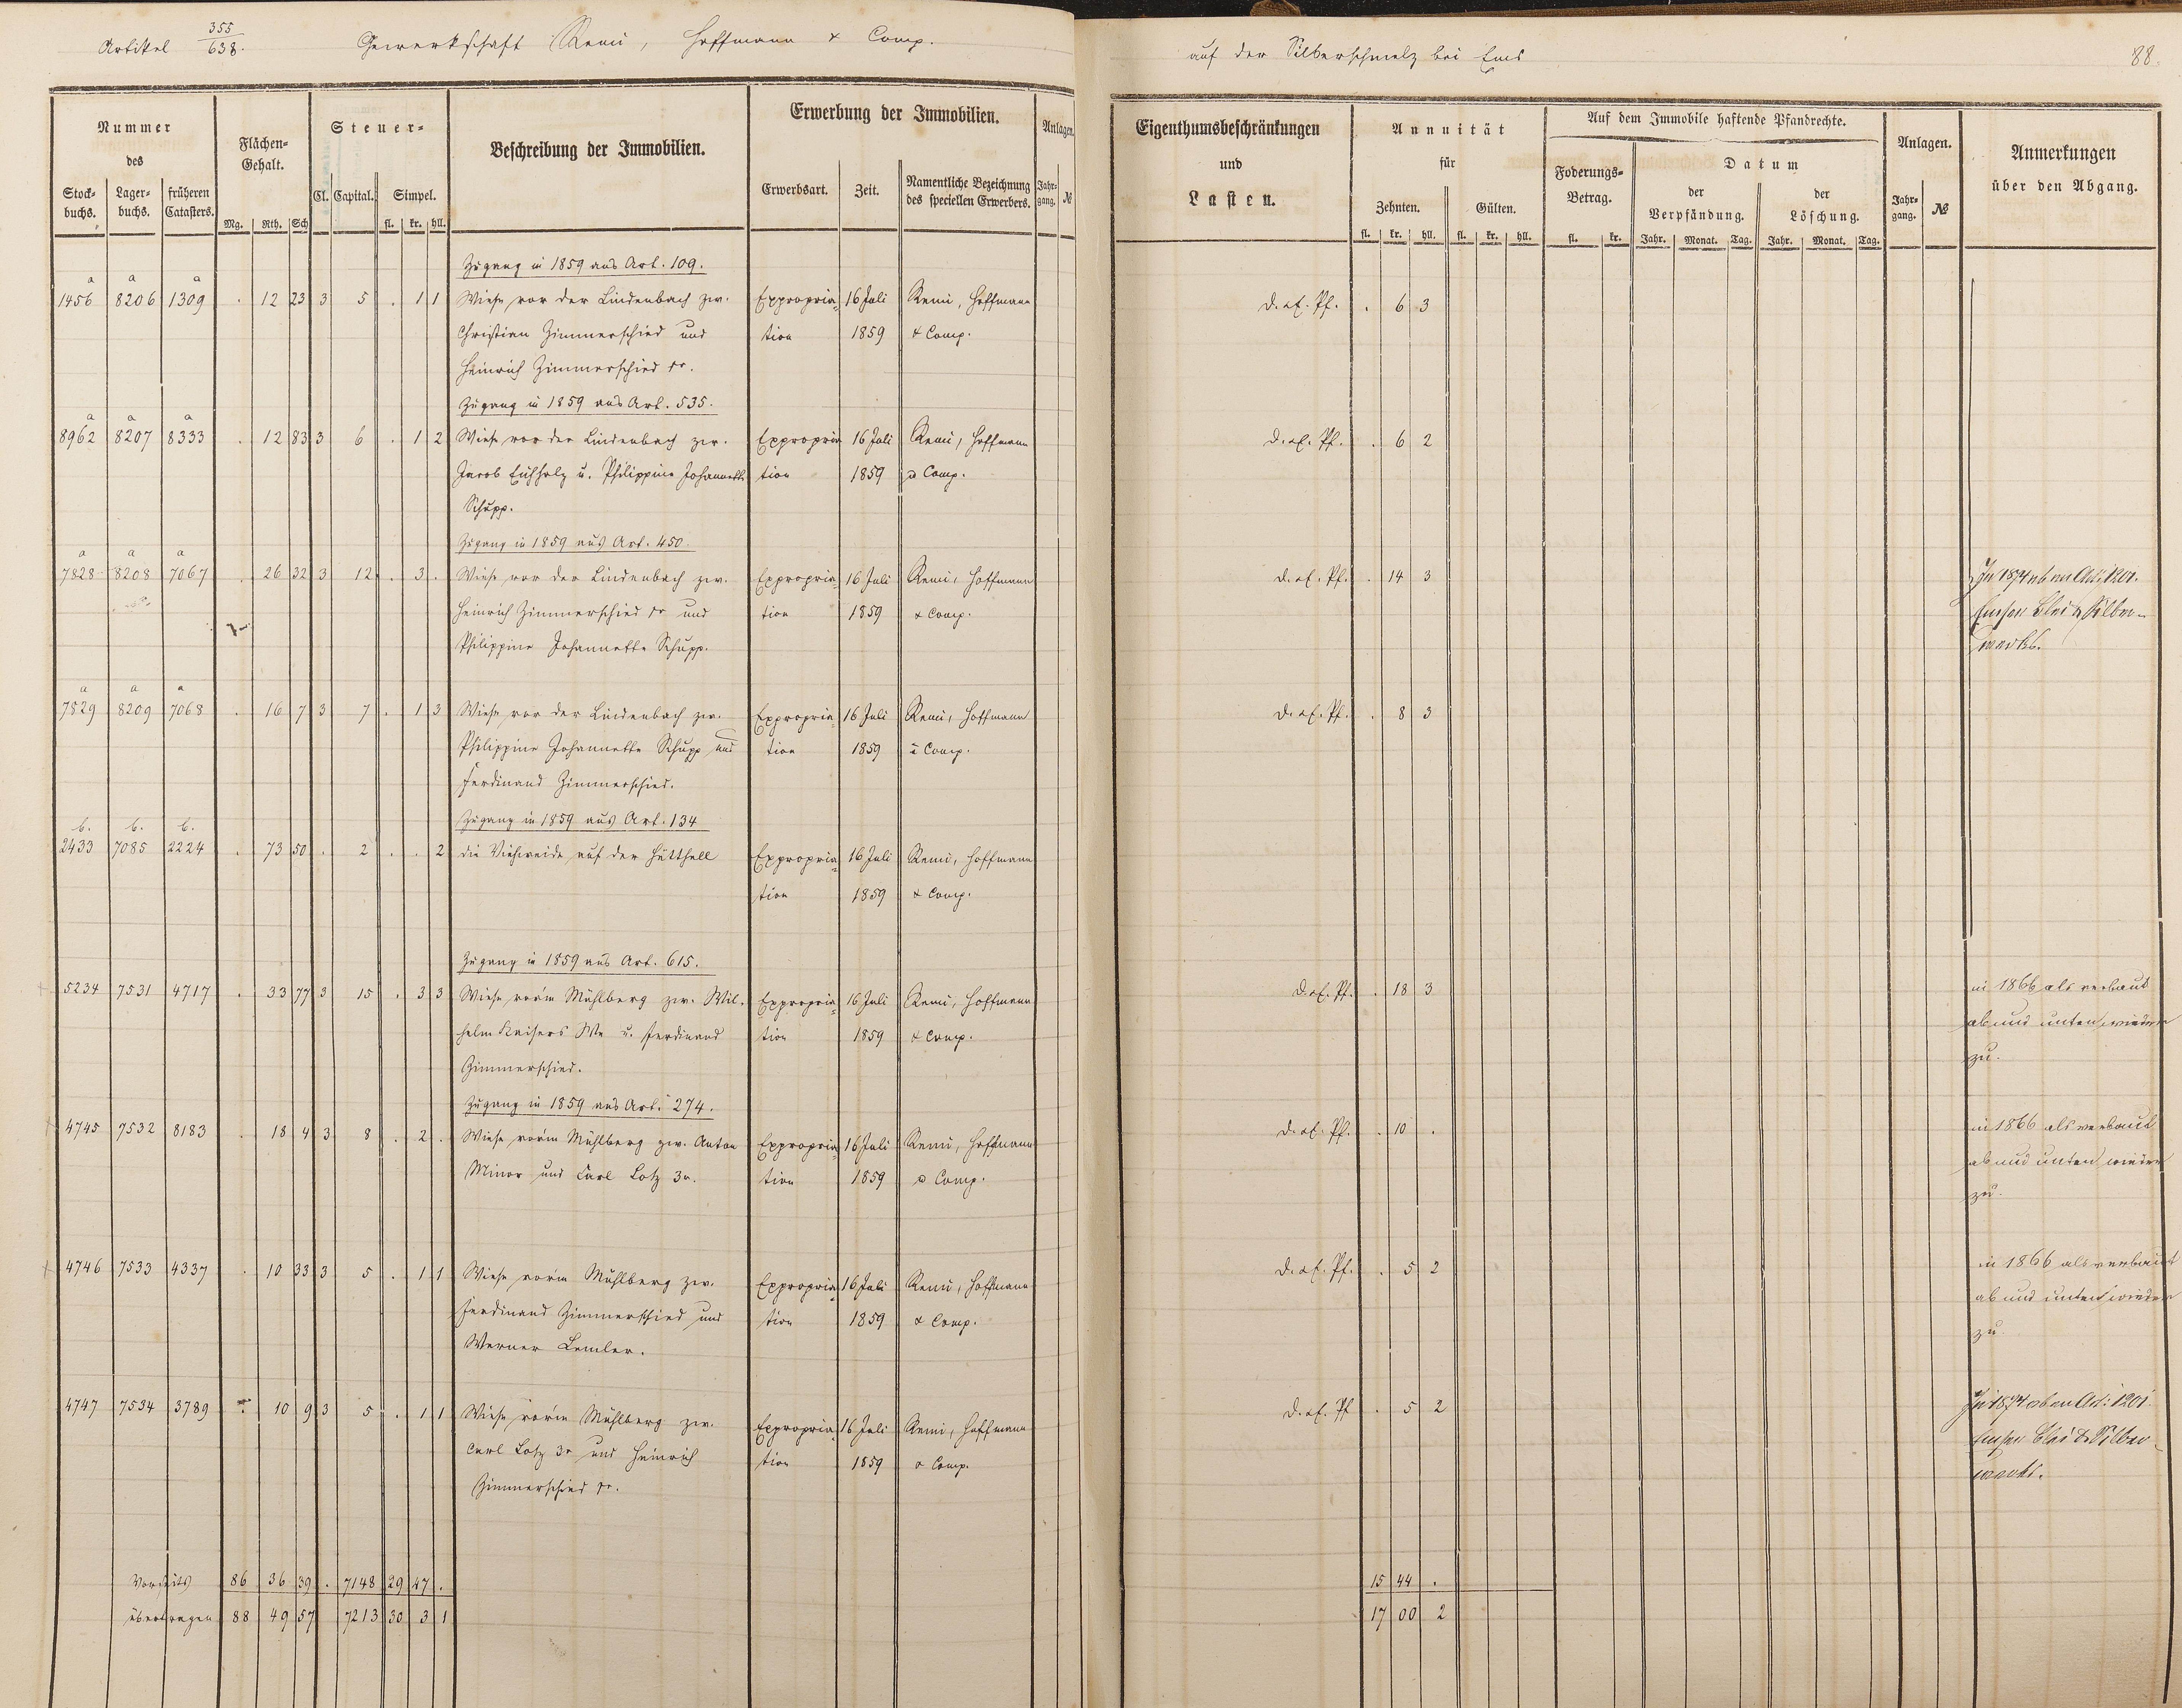 Artikel 355/638. Gewerkschaft Remi, Hoffmann & Comp. auf der Silberschmelz bei Ems 88.
Nummer des
Stockbuchs. Lagerbuchs. früheren Catasters.
Flächen-Gehalt.
Mg. Rth. Sch
Steuer-
Cl. Capital. Simpel.
fl. kr. hll.
Beschreibung der Immobilien.
Erwerbung der Immobilien.
Erwerbsart. Zeit. Namentliche Bezeichnung des speciellen Erwerbers.
Anlagen.
Jahrgang. №
Eigenthumsbeschränkungen und Lasten.
Annuität für
Zehnten. Gülten.
fl. kr. hll. fl. kr. hll.
Auf dem Immobile haftende Pfandrechte.
Foderungs-Betrag.
fl. kr.
Datum
der Verpfändung. der Löschung.
Jahr. Monat. Tag. Jahr. Monat. Tag.
Anlagen.
Jahrgang. №
Anmerkungen über den Abgang.
Zugang in 1859 aus Art. 109.
a a a
1456 8206 1309 . 12 23 3 5 . 1 1 Wiese vor der Lindenbach zw. Expropria= 16 Juli Remi, Hoffmann D. ex. Pf. . 6 3
Christian Zimmerschied und tion 1859 & Comp.
Heinrich Zimmerschied sr.
Zugang in 1859 aus Art. 535.
a a a
8962 8207 8333 . 12 83 3 6 . 1 2 Wiese vor der Lindenbach zw. Expropria 16 Juli Remi, Hoffmann D. ex. Pf. . 6 2
Jacob Eichholz u. Philippine Johannette tion 1859 & Comp.
Schupp.
Zugang in 1859 aus Art. 450.
a a a
7828 8208 7067 . 26 32 3 12 . 3 . Wiese vor der Lindenbach zw. Expropria= 16 Juli Remi, Hoffmann D. ex. Pf. . 14 3 In 1874 ab an Art. 1201.
Heinrich Zimmerschied sr und tion 1859 & Comp. Emser Blei & Silber-
Philippine Johannette Schupp. werks.
a a a
7829 8209 7068 . 16 7 3 7 . 1 3 Wiese vor der Lindenbach zw. Expropria= 16 Juli Remi, Hoffmann D. ex. Pf. . 8 3
Philippine Johannette Schupp und tion 1859 & Comp.
Ferdinand Zimmerschied.
Zugang in 1859 aus Art. 134
b. b. b.
2433 7085 2224 . 73 50 . 2 . . 2 die Viehweide auf der Hütthell Expropria= 16 Juli Remi, Hoffmann
tion 1859 & Comp.
Zugang in 1859 aus Art. 615.
+ 5234 7531 4717 . 33 77 3 15 . 3 3 Wiese vor'm Mühlberg zw. Wil- Expropria= 16 Juli Remi, Hoffmann D. ex. Pf. . 18 3 in 1866 als verbaut
helm Kaisers We u. Ferdinand tion 1859 & Comp. ab und unten wieder
Zimmerschied. zu.
Zugang in 1859 aus Art. 274.
+ 4745 7532 8183 . 18 4 3 8 . 2 . Wiese vor'm Mühlberg zw. Anton Expropria= 16 Juli Remi, Hoffmann D. ex. Pf. . 10 . in 1866 als verbaut
Minor und Carl Lotz 3r. tion 1859 & Comp. ab und unten wieder
zu.
+ 4746 7533 4337 . 10 33 3 5 . 1 1 Wiese vor'm Mühlberg zw. Expropria= 16 Juli Remi, Hoffmann D. ex. Pf. . 5 2 in 1866 als verbaut
Ferdinand Zimmerschied und tion 1859 & Comp. ab und unten wieder
Werner Lemler. zu.
4747 7534 3789 . 10 9 3 5 . 1 1 Wiese vor'm Mühlberg zw. Expropria= 16 Juli Remi, Hoffmann D. ex. Pf . 5 2 In 1874 ab an Art: 1201
Carl Lotz 3r und Heinrich tion 1859 & Comp. Emser Blei & Silber-
Zimmerschied sr. werks.
Vorseits 86 36 39 . 7148 29 47 . 15 44 .
übertragen 88 49 57 7213 30 3 1 17 00 2